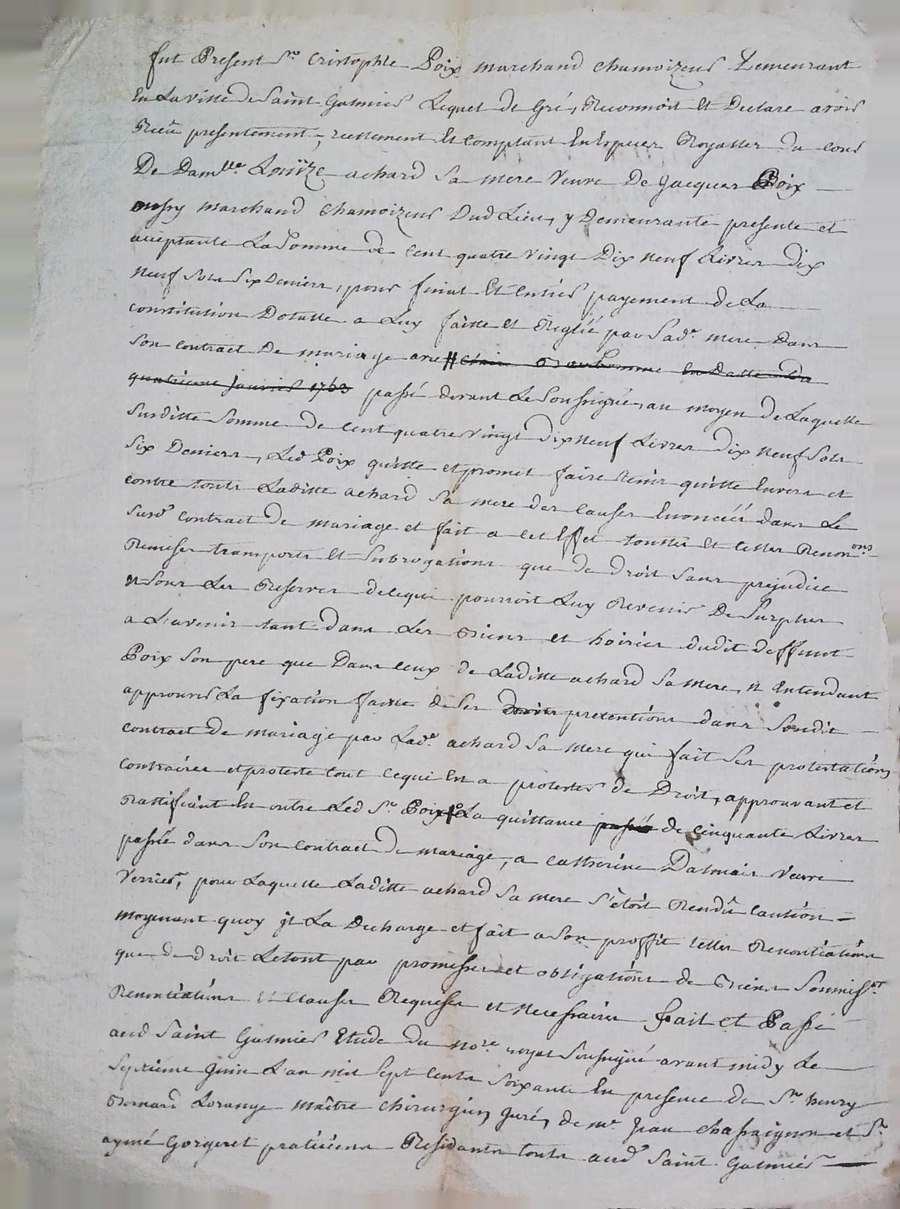 fut Present Sr Cristophle Poix marchand chamoizeur Demeurant
En La ville de Saint Galmier Lequel de Gré, Reconnoit Et Declare avoir
Receu presentement, reellement Et Comptant En Especes Royalles du cours
De Damlle Loüize achard Sa mere Veuve De Jacques Poix
aussy marchand chamoizeur Dud Lieu, y Demeurante presente et
acceptante La Somme de Cent quatre vingt Dix Neuf Livres dix
Neuf Sols Six Deniers, pour final Et Entier payement de La
constitution Dotalle a Luy faitte et Reglée par Sade mere Dans
Son contract De mariage avec Claire En datte du
quatrieme janvier 1763 passé devant Le Soussigné, au moyen de Laquelle
Susditte Somme de Cent quatre vingt dix Neuf Livres dix Neuf Sols
Six Deniers, Led Poix quitte et promet faire tenir quitte Envers et
contre touts Laditte achard Sa mere des Causes Enoncéés dans Le
Susd contract de mariage et fait a cet Effet touttes Et telles Renonons
Remises transports Et Subrogations que de droit Sans prejudice
n Sous Les Reserves de ce qui pourroit Luy Revenir De Surplus
a L'avenir tant dans Les Biens et hoirie dudit deffunt
Poix Son pere que Dans Ceux de Laditte achard Sa Mere, n Entendant
approuver La fixation faitte de Ses Droits pretentions dans Sondit
contract de mariage par Lade achard Sa mere qui fait Ses protestations
contraires et proteste tout ce qui En a protester de Droit, approuvant et
Rattifiant En outre Led Sr Poix La quittance passé de Cinquante Livres
passée dans Son Contract de mariage, a Catherine Dalmais veuve
Verrier, pour Laquelle Laditte achard Sa mere S'étoit Rendû Caution
moyenant quoy jl La Decharge et fait a Son proffit telles Renontiations
que de droit Le tout par promesses et obligations de Biens Soumissns
Renontiations Et Clauses Requises et Necessaires Fait et Passé
aud Saint Galmier Etude du nore royal Soussigné avant midy Le
Septieme Juin L'an mil Sept Cents Soixante En presence de Sr henry
Bernard Lorange maître chirurgien juré, de me Jean Chassaignon et Sr
aymé Gorgeret praticiens Residants touts aud Saint Galmier